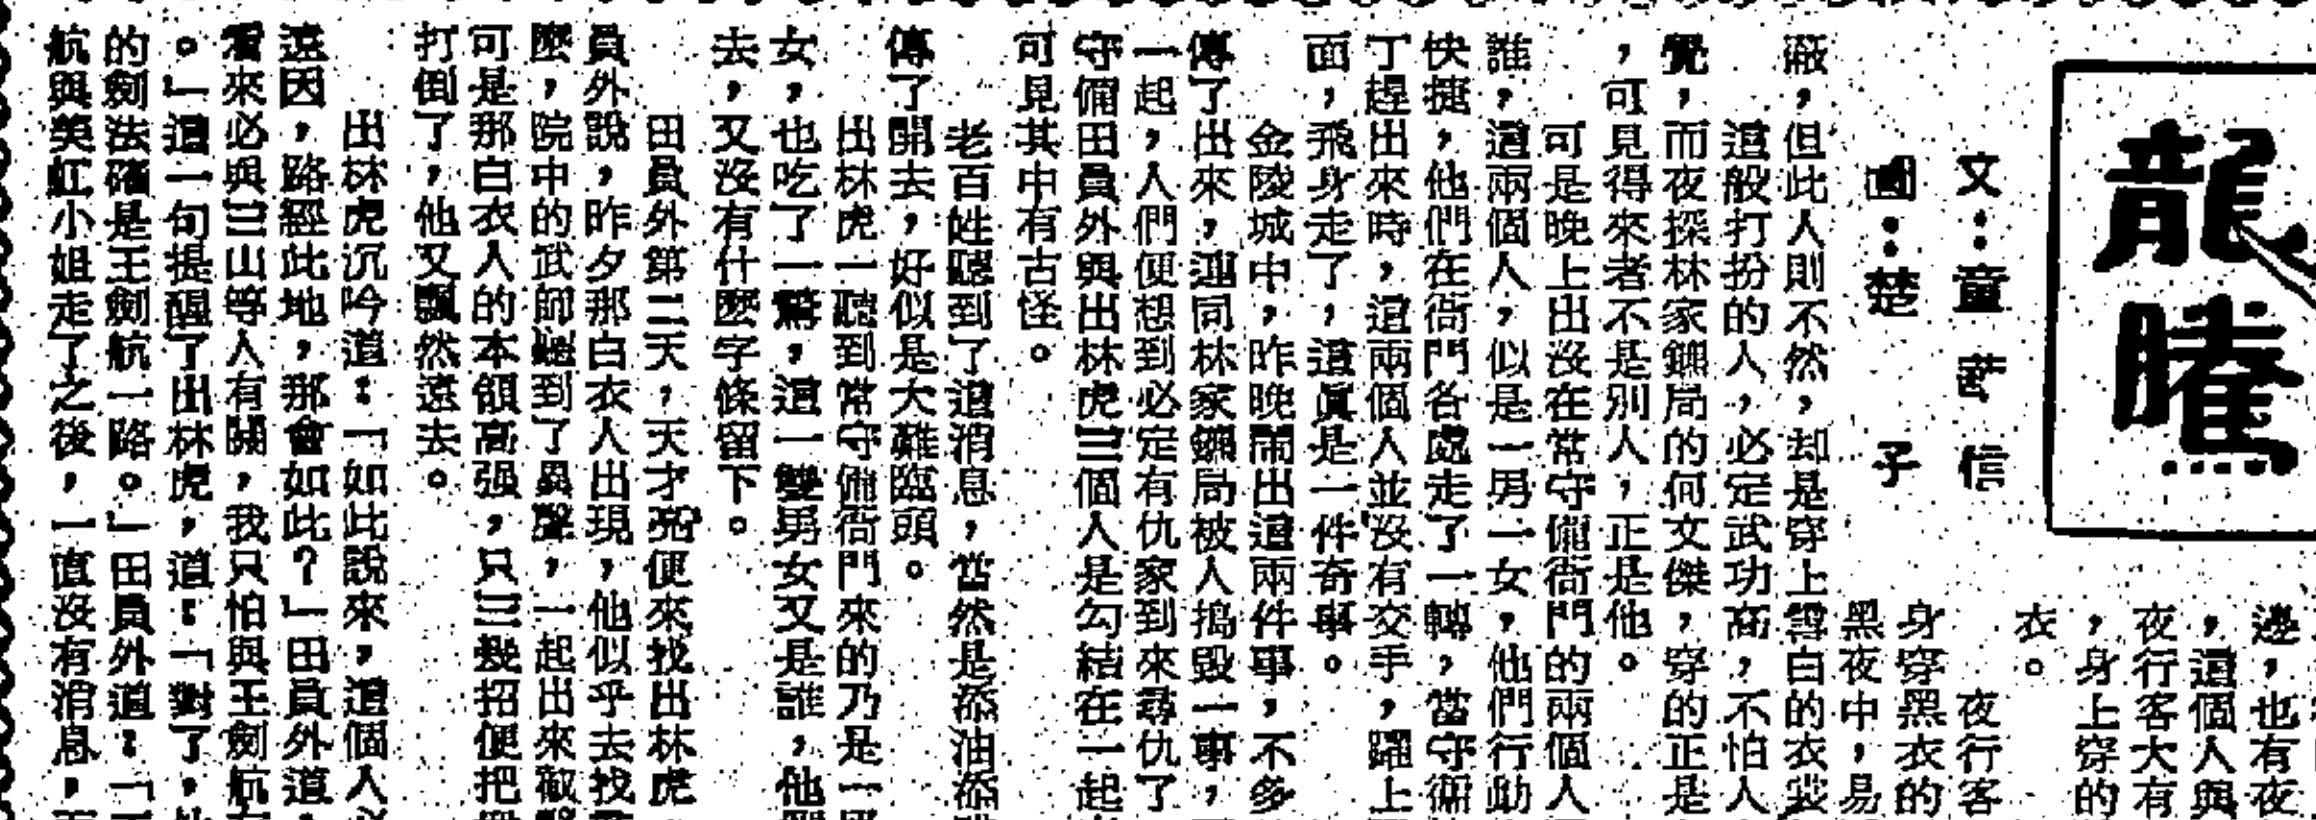 龍騰
文：童 信
圖：楚 子
邊，也有夜
，這個人與
夜行客大有
，身上穿的
衣。
夜行客
身穿黑衣的
黑夜中，易
蔽，但此人則不然，却是穿上雪白的衣裳
這般打扮的人，必定武功高，不怕人
覺，而夜探林家鏢局的何文傑，穿的正是
，可見得來者不是別人，正是他。
可是晚上出沒在常守備衙門的兩個人
誰，這兩個人，似是一男一女，他們行動
快捷，他們在衙門各處走了一轉，當守衛
丁趕出來時，這兩個人並沒有交手，躍上
面，飛身走了，這真是一件奇事。
金陵城中，昨晚鬧出這兩件事，不多
傳了出來，連同林家鏢局被人搗毀一事，
一起，人們便想到必定有仇家到來尋仇了
守備田員外與出林虎三個人是勾結在一起
可見其中有古怪。
老百姓聽到了這消息，當然是添油添
傳了開去，好似是大難臨頭。
出林虎一聽到常守備衙門來的乃是一男
女，也吃了一驚，這一雙男女又是誰，他
去，又沒有什麼字條留下。
田員外第二天，天才亮便來找出林虎，
員外說，昨夕那白衣人出現，他似乎去找
麼，院中的武師聽到了異聲，一起出來敵
可是那白衣人的本領高强，只三幾招便把
打倒了，他又飄然遠去。
出林虎沉吟道：「如此說來，這個人必
遠因，路經此地，那會如此？」田員外道
看來必與三山等人有關，我只怕與王劍航有
。」這一句提醒了出林虎，道：「對了，他
的劍法確是王劍航一路。」田員外道：「
航與美虹小姐走了之後，一直沒有消息，